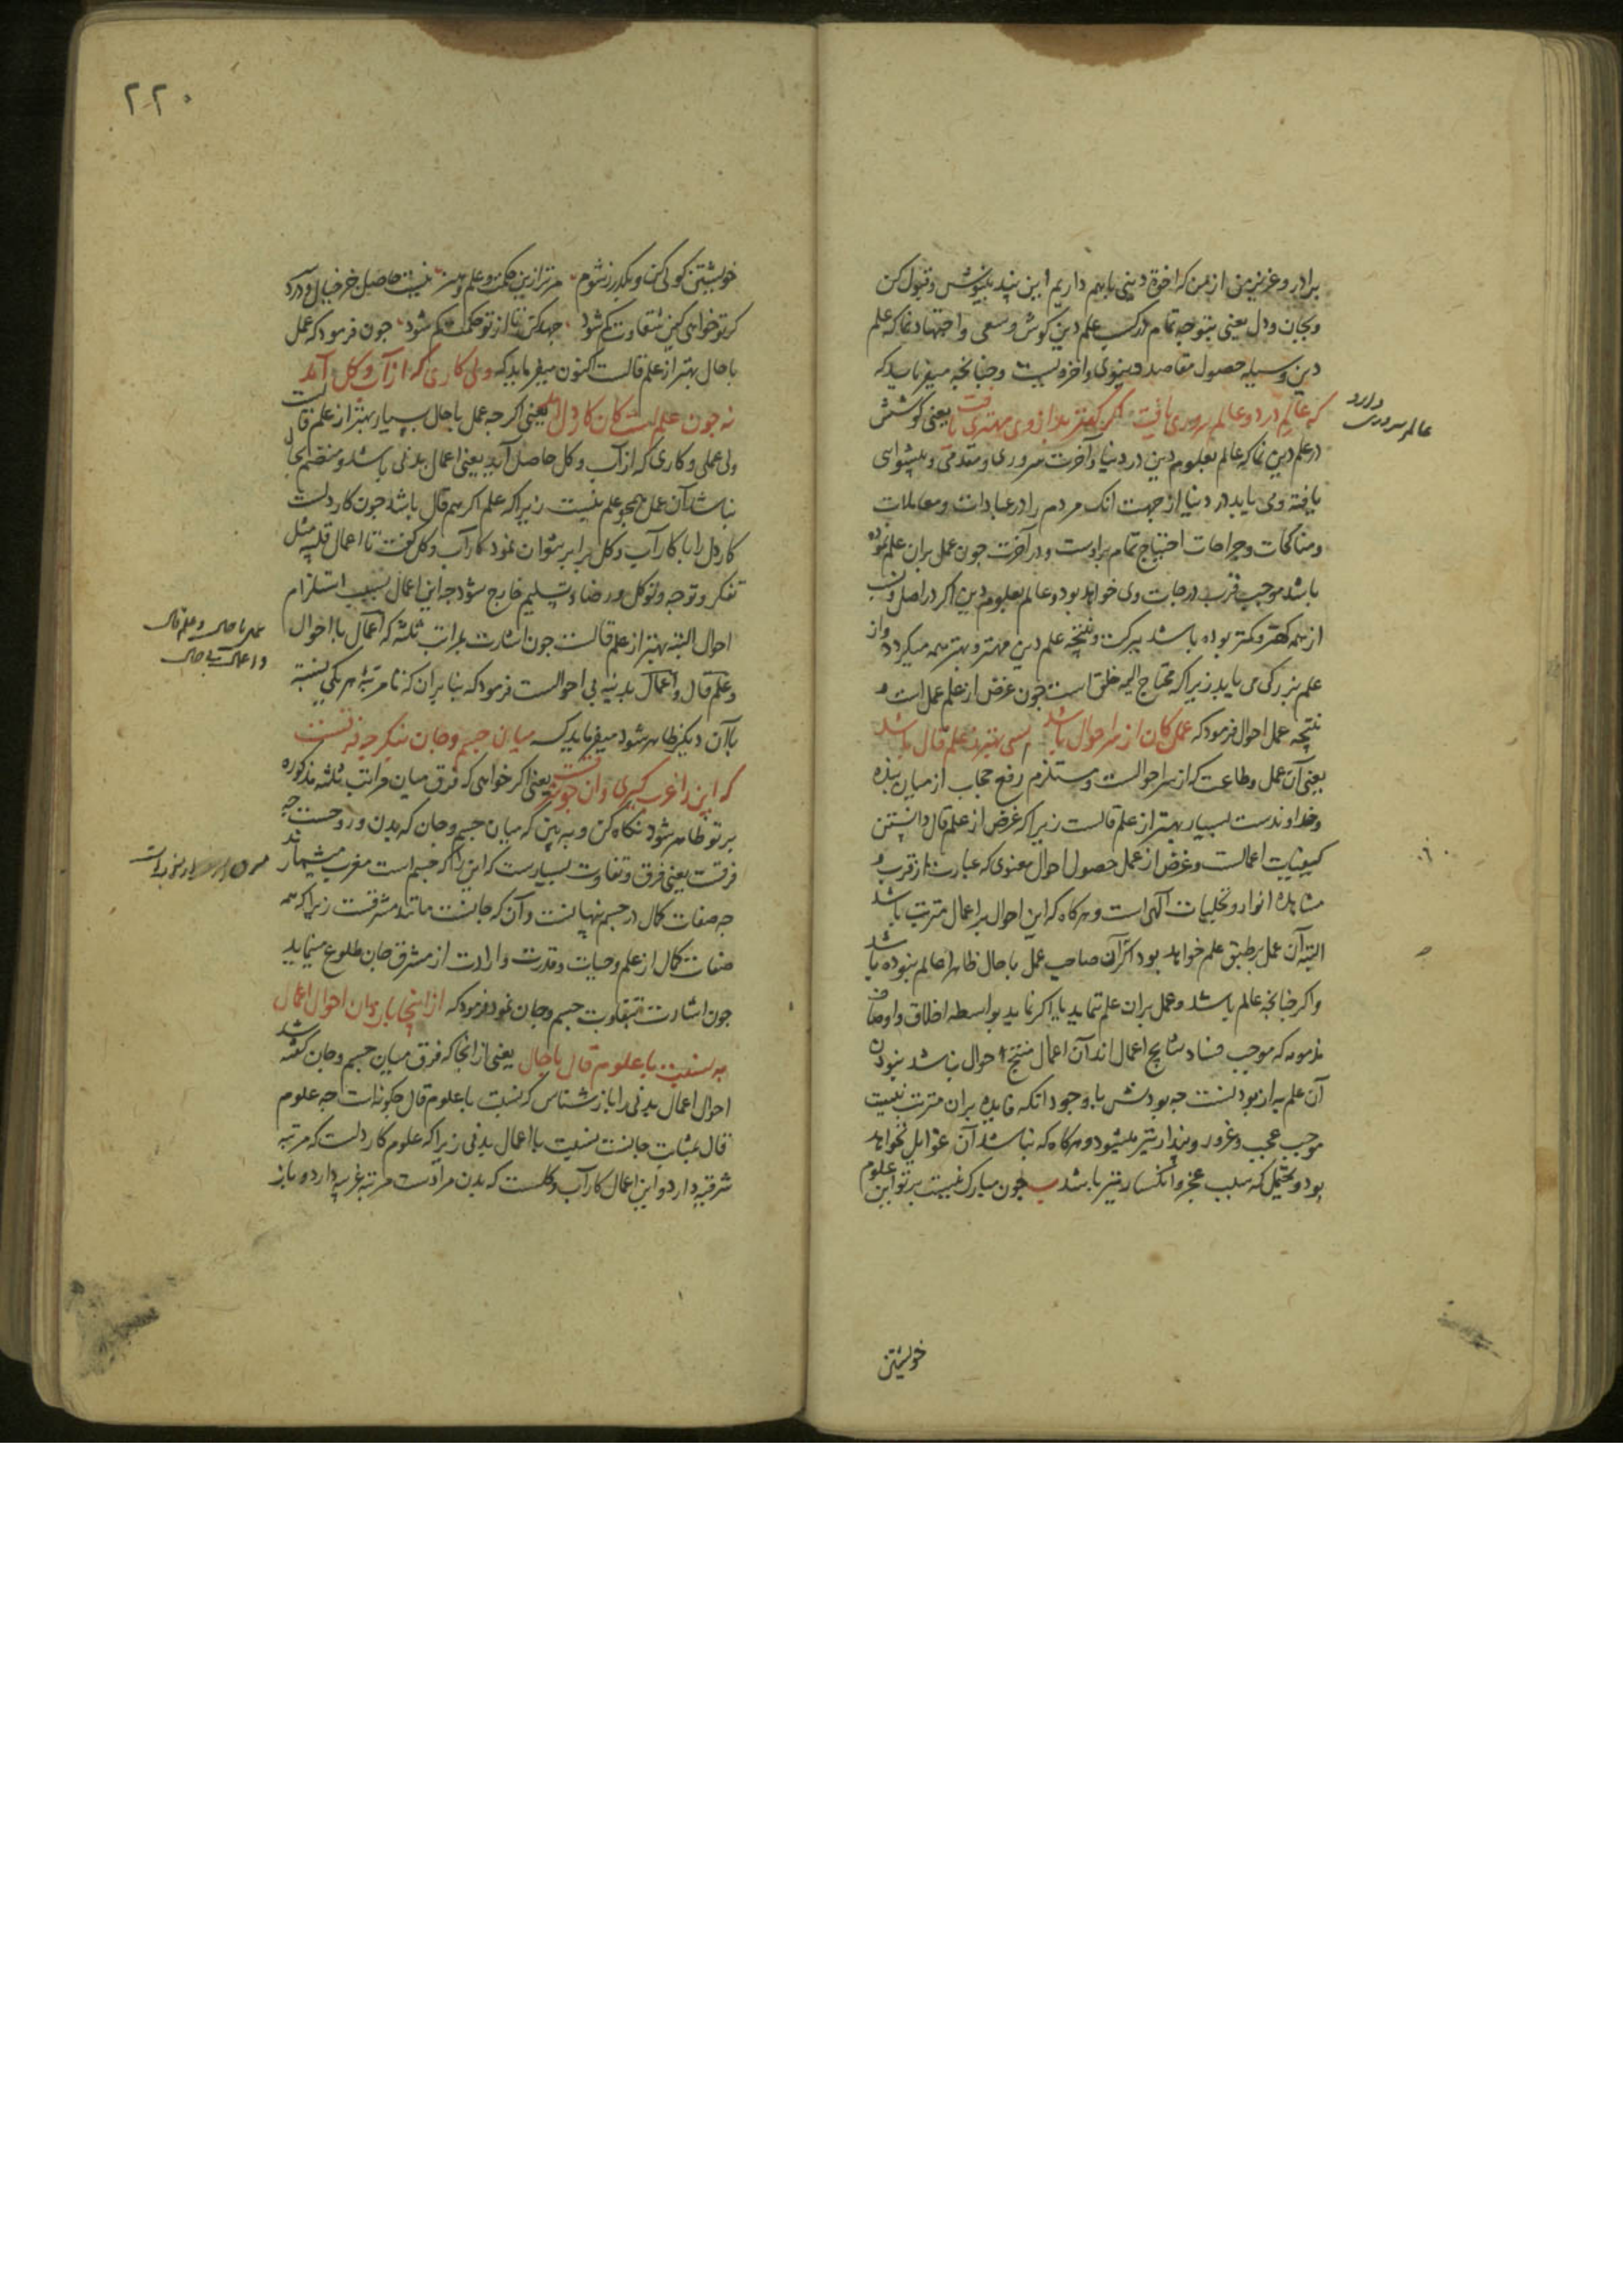 برادر و عزیز من از من که اخوة دینی باهم داریم این پند بنیوش و قبول کن
و بجان و دل یعنی بتوجه تمام در کسب علم دین کوش و سعی و اجتهاد نما که علم
دین وسیله حصول مقاصد دنیوی و اخرویست و چنانچه میفرماید که
که عالم در دو عالم سروری یافت اگر کهتر بد از وی مهتری یافت یعنی کوشش
در علم دین نما که عالم بعلوم دین در دنیا و آخرت سروری و مقدمی و پیشوایی
یافته و می یابد در دنیا از جهت انک مردم را در عبادات و معاملات
و مناکحات و جراحات احتیاج تمام براوست و در آخرت چون عمل بران علم نموده
باشد موجب قرب درجات وی خواهد بود و عالم بعلوم دین اگر در اصل و نسب
از همه کهتر و کمتر بوده باشد ببرکت و نتیجه علم دین مهتر و بهتر همه میکردد و از
علم بزرگی می یابد زیرا که محتاج الیه خلق است چون غرض از علم عمل است و
نتیجه عمل احوال فرمود که عمل کان از سر احوال باشد بسی بهتر ز علم قال باشد
یعنی آن عمل و طاعت که از سر احوالست و مستلزم رفع حجاب از میان بنده
و خداوندست بسیار بهتر از علم قالست زیرا که غرض از علم قال دانستن
کیفیات اعمالست و غرض از عمل حصول احوال معنوی که عبارت از قرب و
مشاهده انوار و تجلیات الهی است و هرکاه که این احوال بر اعمال مترتب باشد
البته آن عمل برطبق علم خواهد بود اگر آن صاحب عمل با حال ظاهرا عالم نبوده باشد
و اگر چنانچه عالم باشد و عمل بران علم ننماید یا اگر نماید بواسطه اخلاق و اوصاف
مذمومه که موجب فساد نتایج اعمال اند آن اعمال منتج احوال نباشد نبودن
آن علم به از بودنست چه بودنش با وجود انکه فایده بران مترتب نیست
موجب عجب و غرور و پندار نیز میشود و هرکاه که نباشد آن غوایل نخواهد
بود و یحتمل که سبب عجز و انکسار نیز باشد چون مبارک نیست برتو این علوم
دارد
عالم سروری
خویشتن
۲۲۰
خویشتن کولی کن و بگذر ز شوم مرترا زین حکمت و علم و هنر نیست حاصل جز خیال و درد
گر تو خواهی کین شقاوت کم شود جهد کن تا از تو حکمت کم شود چون فرمود که عمل
با حال بهتر از علم قالست اکنون میفرماید که ولی کاری که از آب و کل آید
نه چون علمست کان کار دل آید یعنی اکرچه عمل با حال بسیار بهتر از علم قالست
ولی عملی و کاری که از آب و کل حاصل آید یعنی اعمال بدنی باشد و متضمن حال
نباشد آن عمل همچو علم نیست زیرا که علم اکر هم قال باشد چون کار دلست
کار دل را با کار آب و کل برابر نتوان نمود کار آب و کل گفت تا اعمال قلبیه مثل
تفکر و توجه و توکل و رضا و تسلیم خارج شود چه این اعمال بسبب استلزام
احوال البته بهتر از علم قالست چون اشارت بمراتب ثلثه که اعمال با احوال
و علم قال و اعمال بدنیه بی احوالست فرمود که بنا بران که تا مرتبه هر یکی بنسبت
با آن دیکر ظاهر شود میفرماید که میان جسم و جان بنگر چه فرقست
که این را غرب گیری وان چو شرقست یعنی اگر خواهی که فرق میان مراتب ثلثه مذکوره
بر تو ظاهر شود نگاه کن و ببین که میان جسم و جان که بدن و روحست چه
فرقست یعنی فرق و تفاوت بسیارست که این را که جسم است مغرب میشمارند
چه صفات کمال در جسم پنهانست و آن که جانست مانند مشرقست زیرا که همه
صفات کمال از علم و حیات و قدرت و ارادت از مشرق جان طلوع مینماید
چون اشارت بتفاوت جسم و جان نمود فرمود که از اینجا باز دان احوال اعمال
به نسبت با علوم قال با حال یعنی از انجا که فرق میان جسم و جان گفته شد
احوال اعمال بدنی را باز شناس که نسبت با علوم قال چگونه است چه علوم
قال بمثابت جانست نسبت با اعمال بدنی زیرا که علوم کار دلست که مرتبه
شرقیه دارد و این اعمال کار آب و کلست که بدن مرادست مرتبه غربیه دارد و باز
عمل با حال و علم قال
و اعمال بی حال